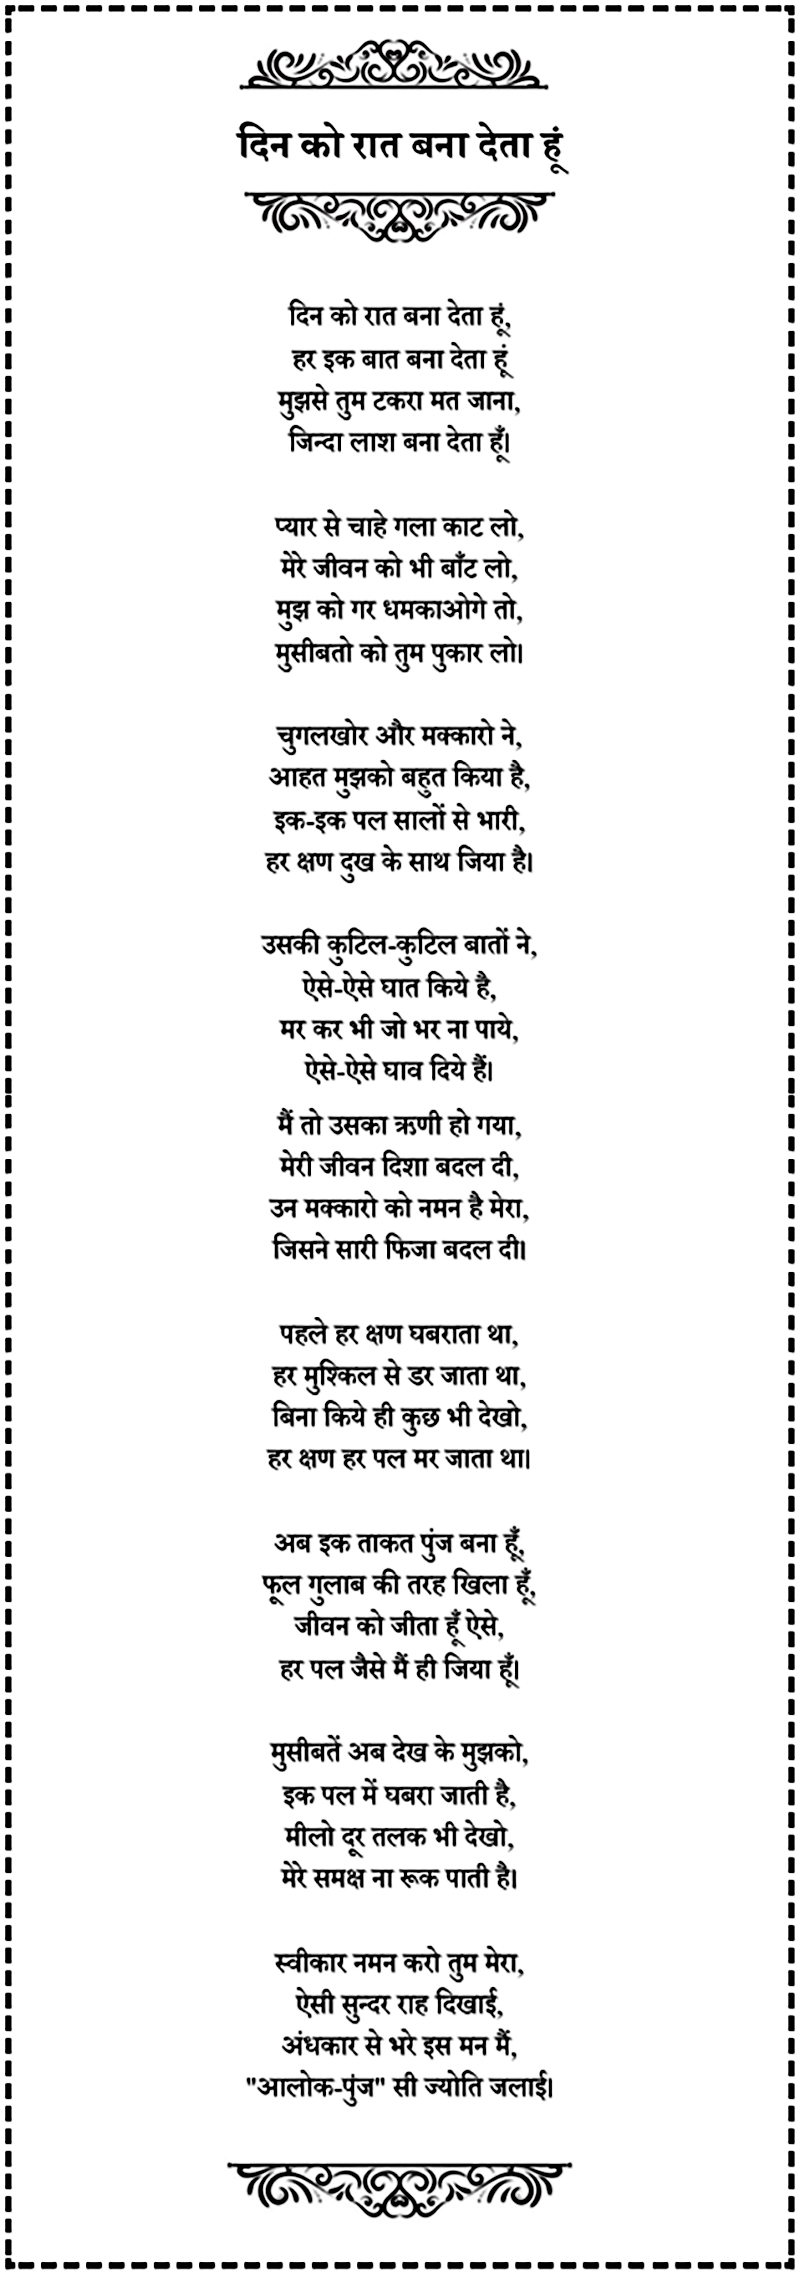 दिन को रात बना देता हूं
दिन को रात बना देता हूं,
हर इक बात बना देता हूं
मुझसे तुम टकरा मत जाना,
जिन्दा लाश बना देता हूँ।
प्यार से चाहे गला काट लो,
मेरे जीवन को भी बाँट लो,
मुझ को गर धमकाओगे तो,
मुसीबतो को तुम पुकार लो।
चुगलखोर और मक्कारो ने,
आहत मुझको बहुत किया है,
इक-इक पल सालों से भारी,
हर क्षण दुख के साथ जिया है।
उसकी कुटिल-कुटिल बातों ने,
ऐसे-ऐसे घात किये है,
मर कर भी जो भर ना पाये,
ऐसे-ऐसे घाव दिये हैं।
मैं तो उसका ऋणी हो गया,
मेरी जीवन दिशा बदल दी,
उन मक्कारो को नमन है मेरा,
जिसने सारी फिजा बदल दी।
पहले हर क्षण घबराता था,
हर मुश्किल से डर जाता था,
बिना किये ही कुछ भी देखो,
हर क्षण हर पल मर जाता था।
अब इक ताकत पुंज बना हूँ,
फूल गुलाब की तरह खिला हूँ,
जीवन को जीता हूँ ऐसे,
हर पल जैसे मैं ही जिया हूँ।
मुसीबतें अब देख के मुझको,
इक पल में घबरा जाती है,
मीलो दूर तलक भी देखो,
मेरे समक्ष ना रूक पाती है।
स्वीकार नमन करो तुम मेरा,
ऐसी सुन्दर राह दिखाई,
अंधकार से भरे इस मन मैं,
"आलोक-पुंज" सी ज्योति जलाई।